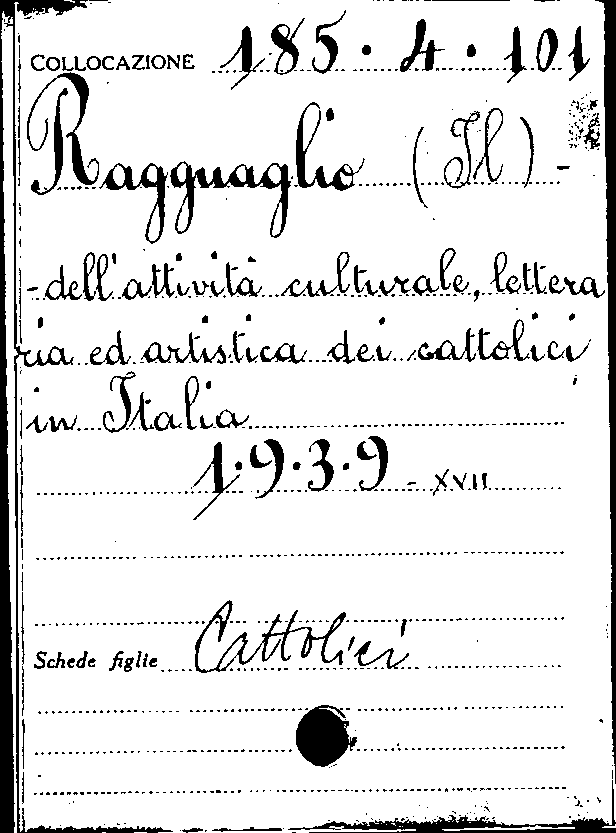 COLLOCAZIONE 185.4.101
Ragguaglio (Il) -
- dell'attività culturale, lettera
ria ed artistica dei cattolici
in Italia
1.9.3.9 - XVII
Schede figlie Cattolici